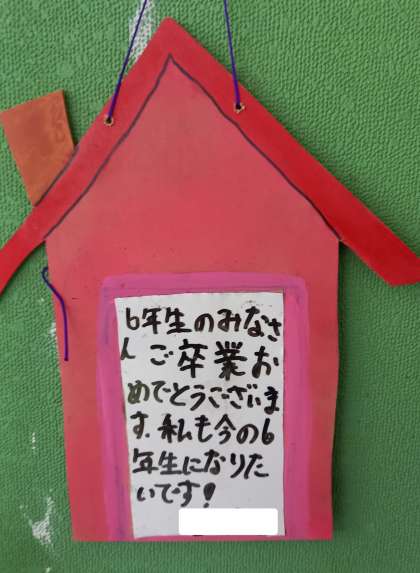 6年生のみなさ
ん ご卒業お
めでとうございま
す。私も今の6
年生になりた
いです!